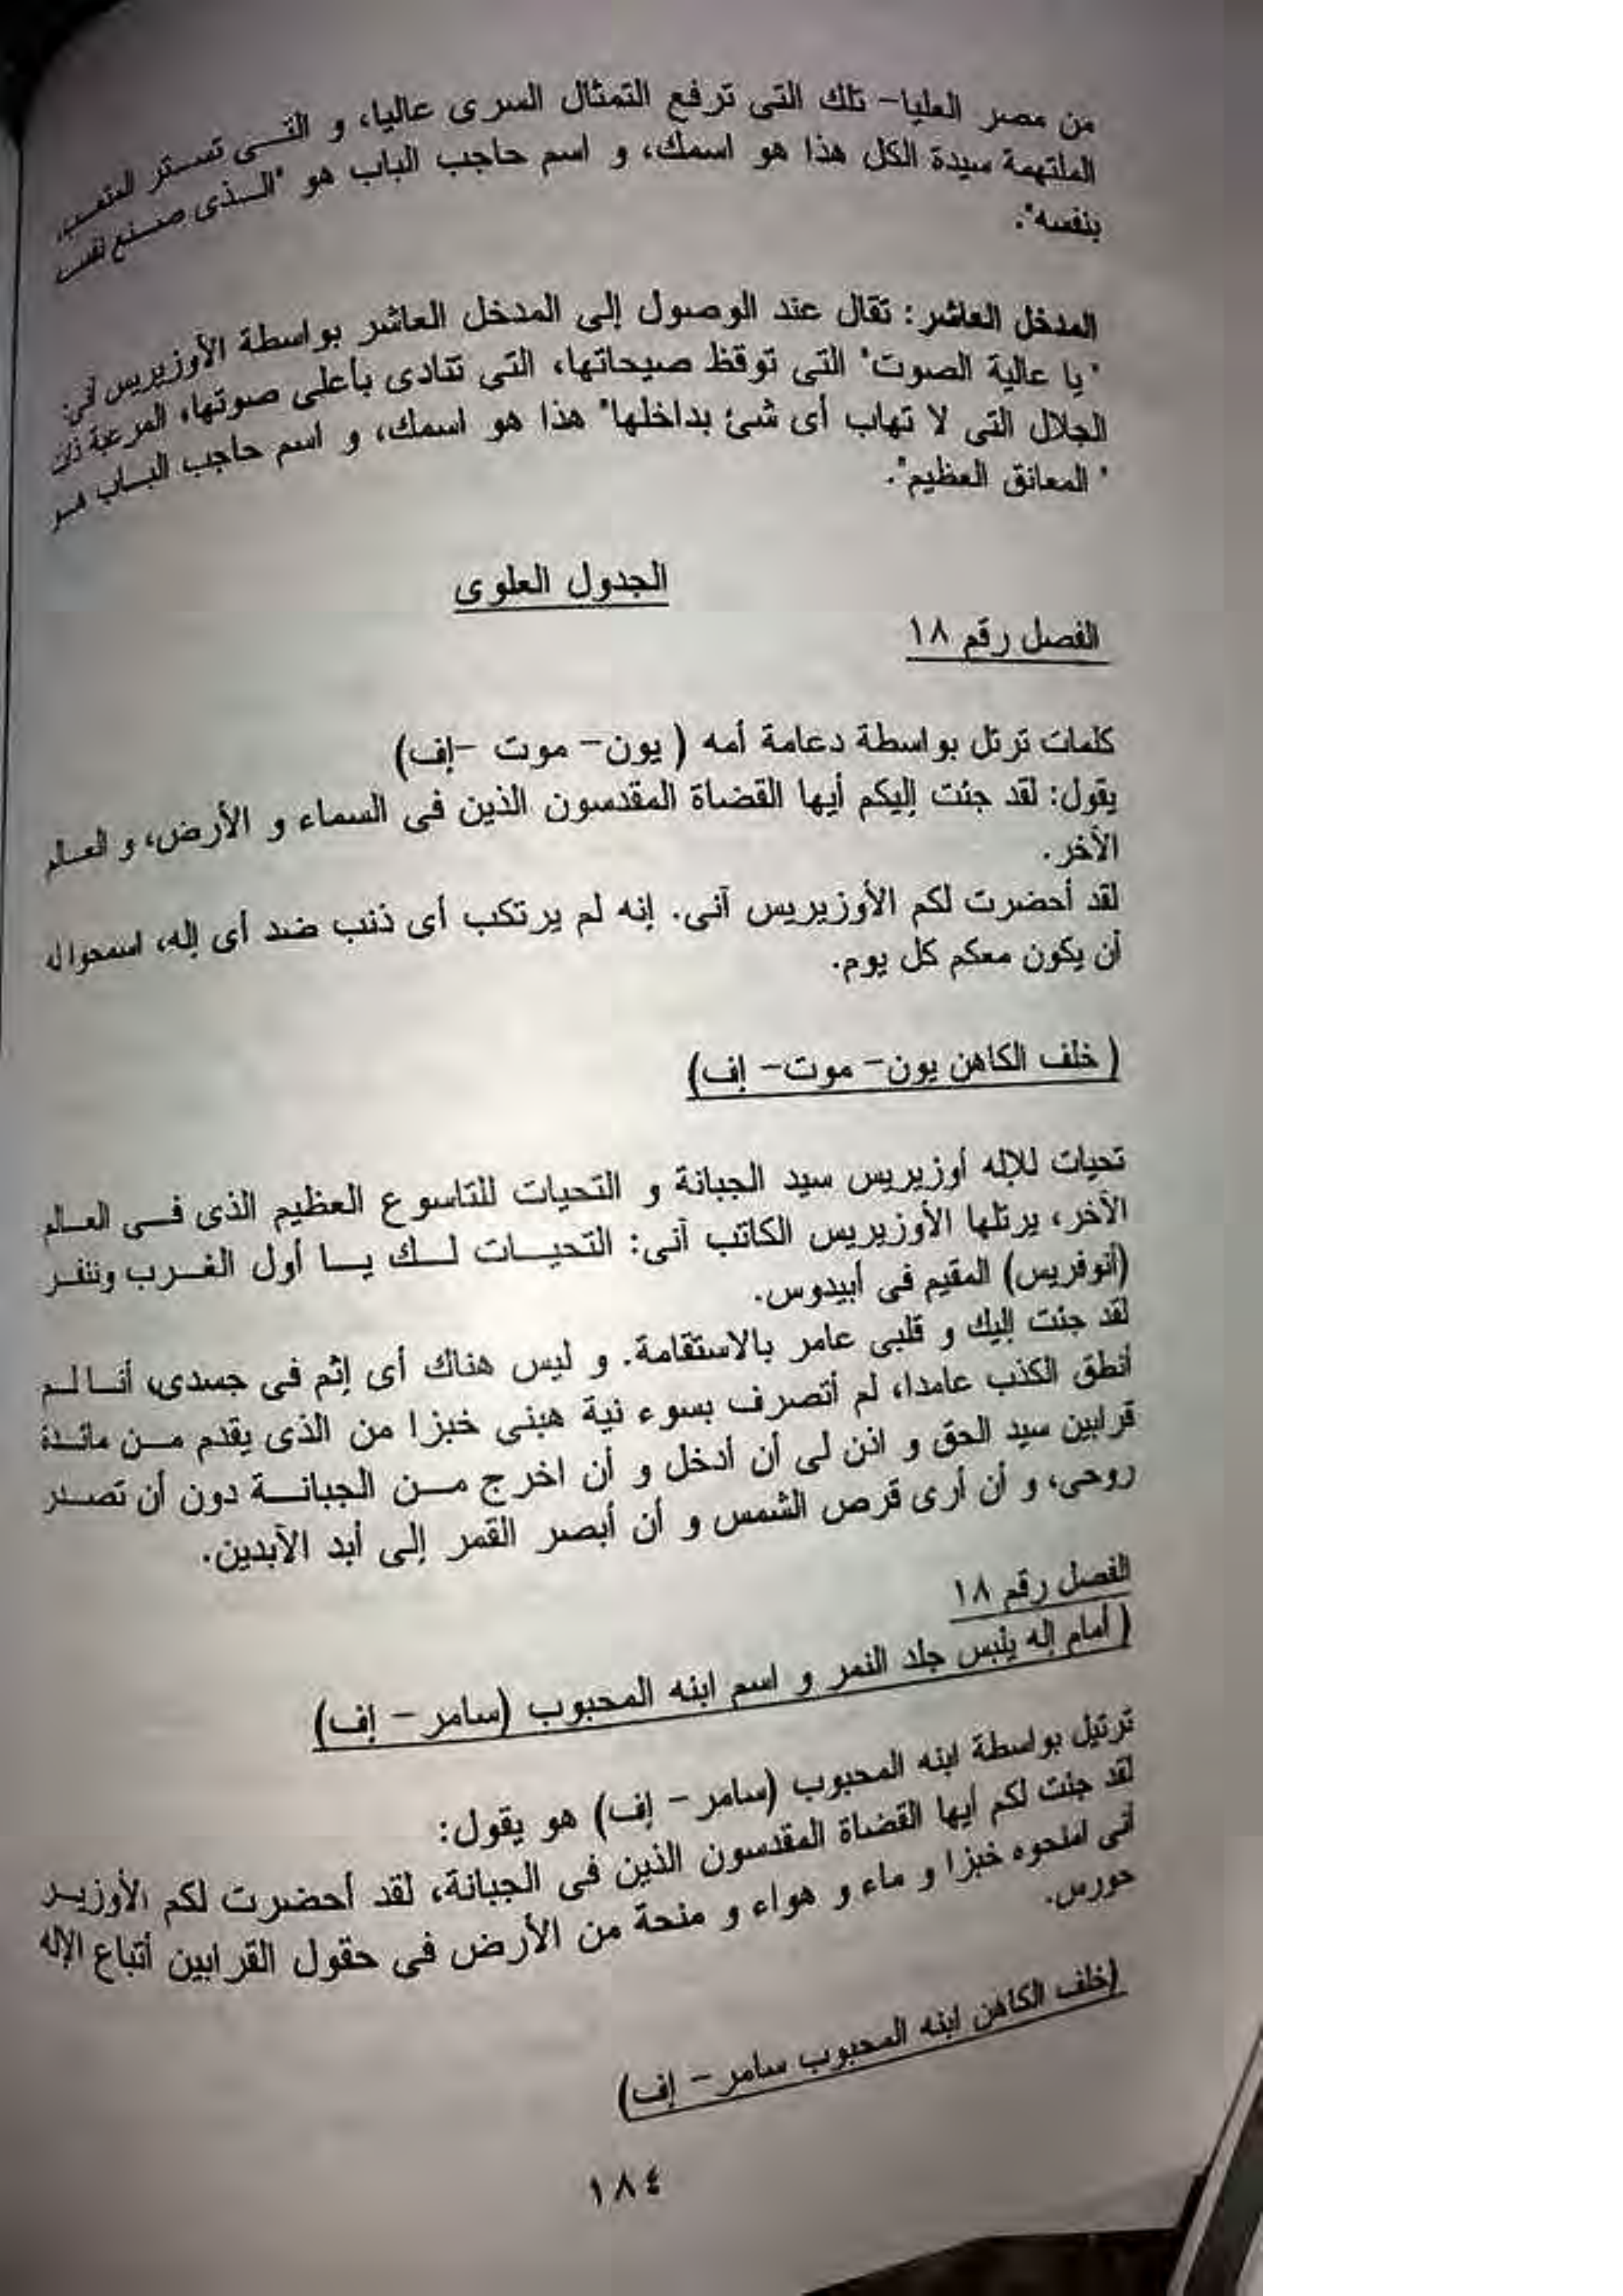 من مصر العليا- تلك التى ترفع التمثال السرى عاليا، و التـــى تستر المتعب،
الملتهمة سيدة الكل هذا هو اسمك، و اسم حاجب الباب هو "الــذى صنع نفسه
بنفسه".
المدخل العاشر: تقال عند الوصول إلى المدخل العاشر بواسطة الأوزيريس آنى:
"يا عالية الصوت" التى توقظ صيحاتها، التى تنادى بأعلى صوتها، المرعبة ذات
الجلال التى لا تهاب أى شئ بداخلها" هذا هو اسمك، و اسم حاجب الباب هو
" المعانق العظيم".
الجدول العلوى
الفصل رقم ١٨
كلمات ترتل بواسطة دعامة أمه ( يون- موت -إف)
يقول: لقد جئت إليكم أيها القضاة المقدسون الذين فى السماء و الأرض، و العالم
الأخر.
لقد أحضرت لكم الأوزيريس آنى. إنه لم يرتكب أى ذنب ضد أى إله، اسمحوا له
أن يكون معكم كل يوم.
( خلف الكاهن يون- موت- إف)
تحيات للإله أوزيريس سيد الجبانة و التحيات للتاسوع العظيم الذى فى العالم
الآخر، يرتلها الأوزيريس الكاتب آنى: التحيات لك يا أول الغرب وننفر
(أنوفريس) المقيم فى أبيدوس.
لقد جئت إليك و قلبى عامر بالاستقامة. و ليس هناك أى إثم فى جسدى، أنا لم
أنطق الكذب عامدا، لم أتصرف بسوء نية هبنى خبزا من الذى يقدم من مائدة
قرابين سيد الحق و اذن لى أن أدخل و أن اخرج من الجبانة دون أن تصدر
روحى، و أن أرى قرص الشمس و أن أبصر القمر إلى أبد الآبدين.
الفصل رقم ١٨
( أمام إله يلبس جلد النمر و اسم ابنه المحبوب (سامر - إف)
ترتيل بواسطة ابنه المحبوب (سامر - إف) هو يقول:
لقد جئت لكم أيها القضاة المقدسون الذين فى الجبانة، لقد أحضرت لكم الأوزير
أنى امنحوه خبزا و ماء و هواء و منحة من الأرض فى حقول القرابين أتباع الإله
حورس.
(خلف الكاهن ابنه المحبوب سامر - إف)
١٨٤